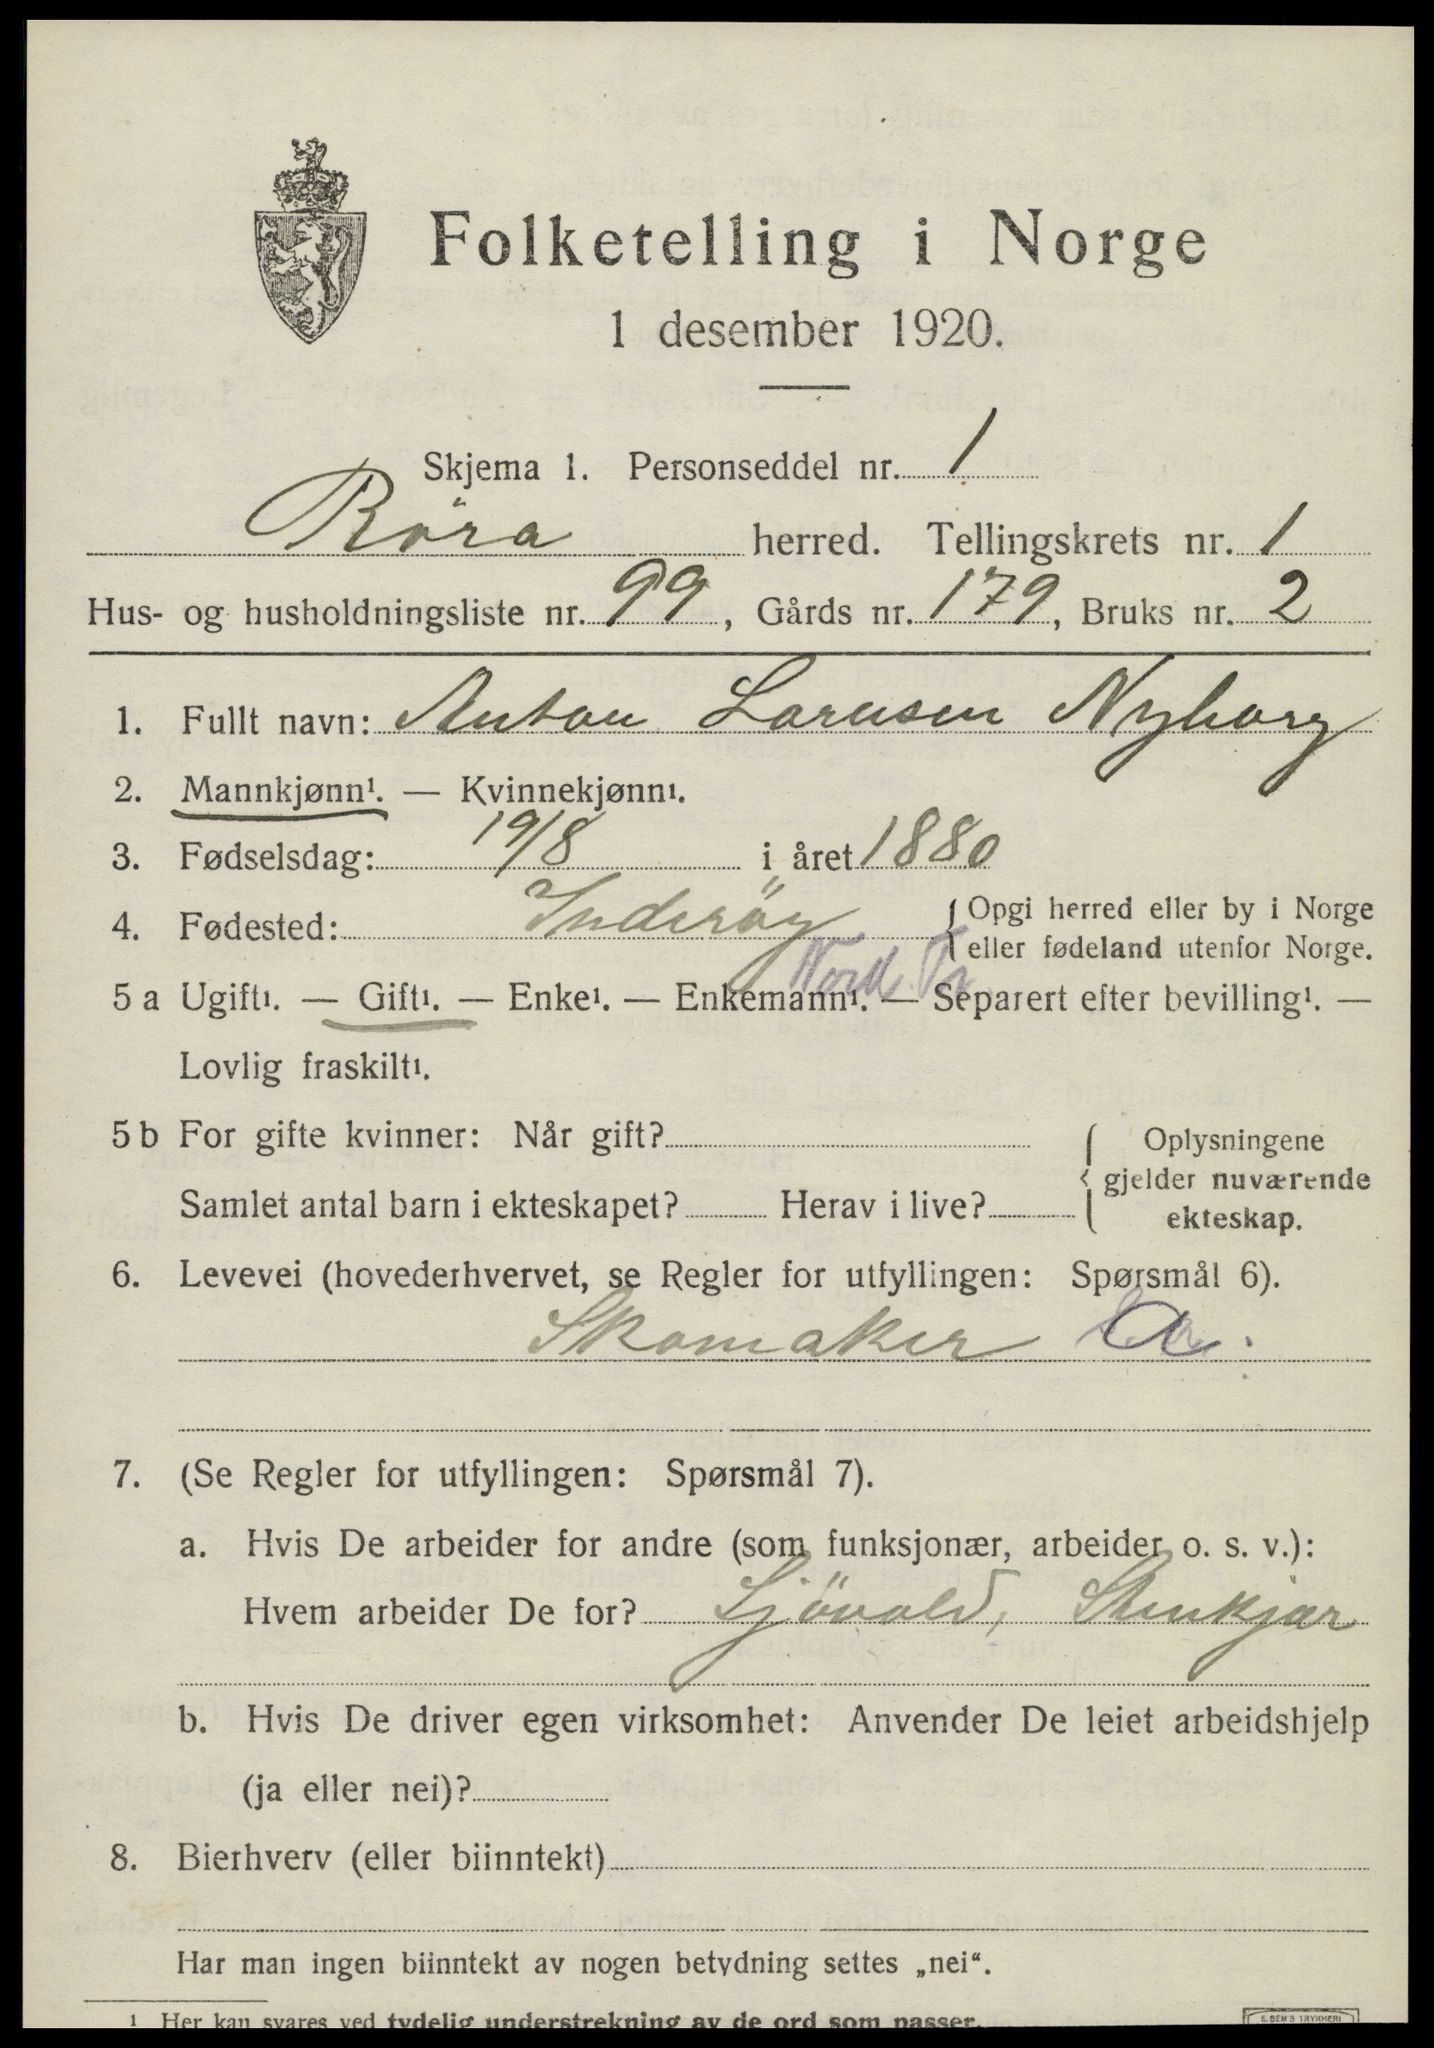 Folketelling i Norge
1 desember 1920.
Skjema 1. Personseddel nr. 1
Röra herred. Tellingskrets nr. 1
Hus- og husholdningsliste nr. 99, Gårds nr. 179, Bruks nr. 2
1. Fullt navn: Anton Larusen Nyborg
2. Mannkjønn¹. — Kvinnekjønn¹.
3. Fødselsdag: 19/8 i året 1880
4. Fødested: Inderöy { Opgi herred eller by i Norge
eller fødeland utenfor Norge.
Nord Tr.
5 a Ugift¹. — Gift¹. — Enke¹. — Enkemann¹. — Separert efter bevilling¹. —
Lovlig fraskilt¹.
5 b For gifte kvinner: Når gift? { Oplysningene
gjelder nuværende
ekteskap.
Samlet antal barn i ekteskapet? Herav i live?
6. Levevei (hovederhvervet, se Regler for utfyllingen: Spørsmål 6).
Skomaker a.
7. (Se Regler for utfyllingen: Spørsmål 7).
a. Hvis De arbeider for andre (som funksjonær, arbeider o. s. v.):
Hvem arbeider De for? Sjövold, Stenkjær
b. Hvis De driver egen virksomhet: Anvender De leiet arbeidshjelp
(ja eller nei)?
8. Bierhverv (eller biinntekt)
Har man ingen biinntekt av nogen betydning settes „nei“.
¹ Her kan svares ved tydelig understrekning av de ord som passer.